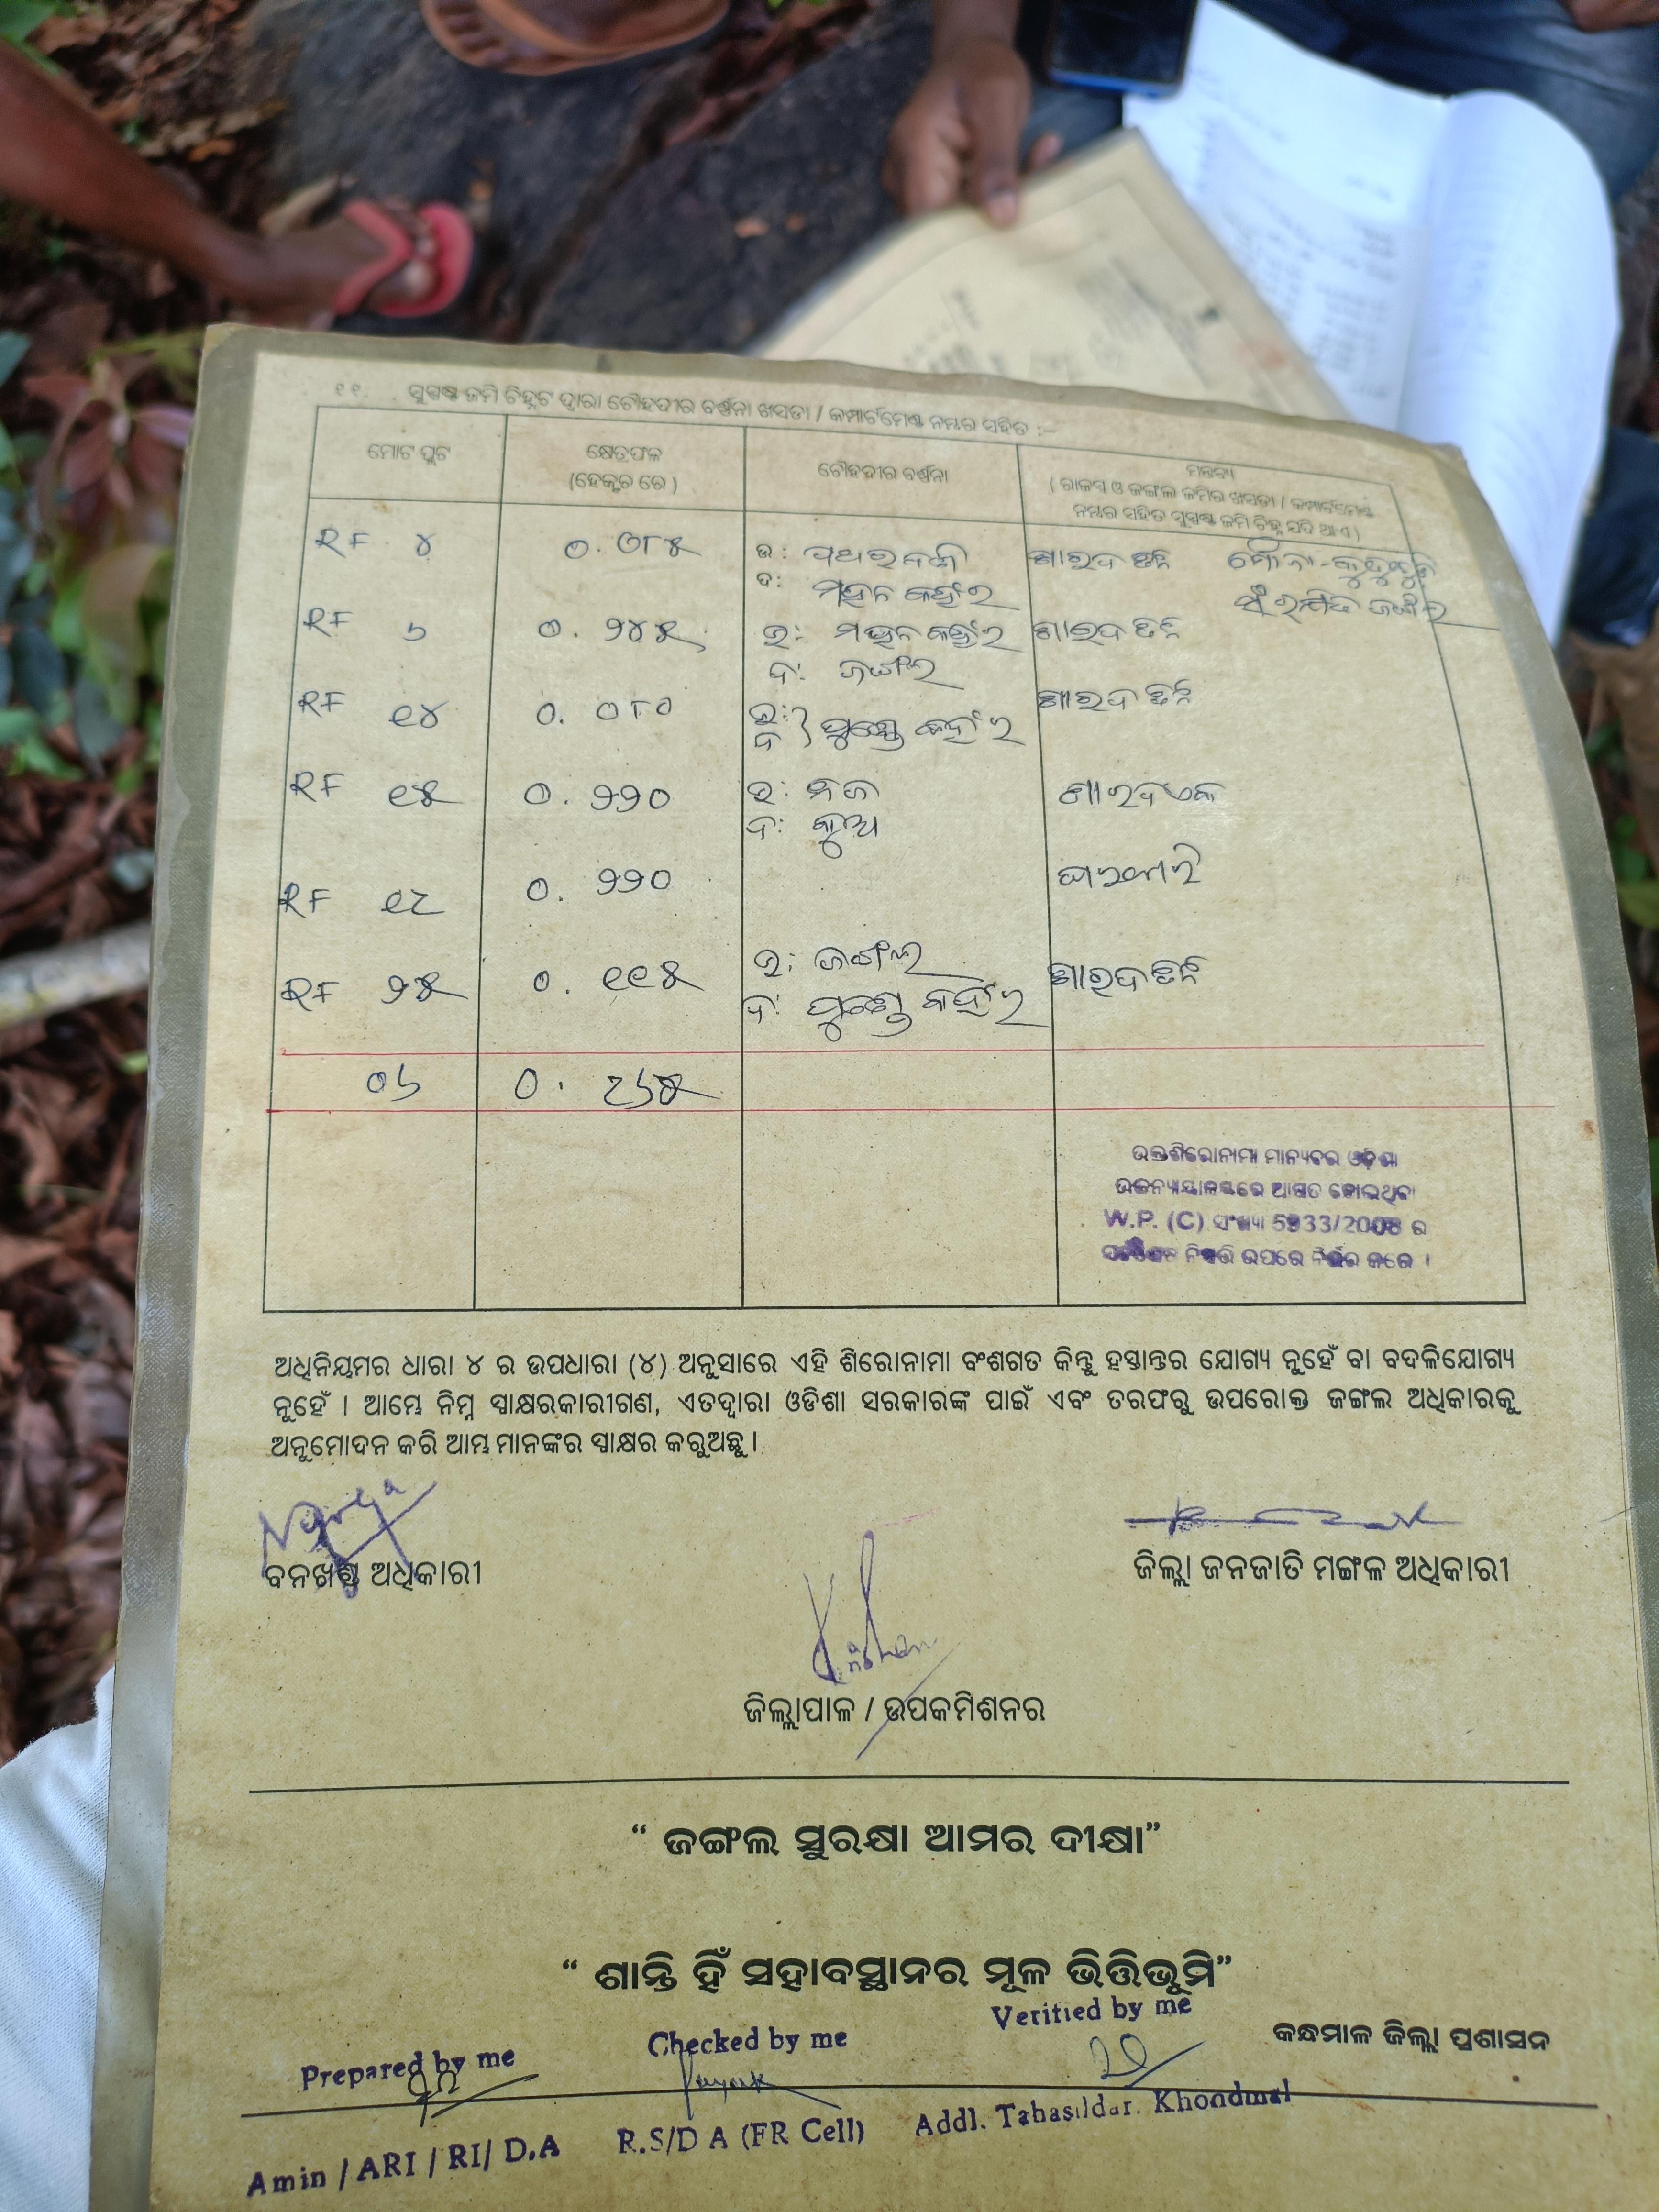 ୧୧. ସୁସ୍ପଷ୍ଟ ଜମି ଚିହ୍ନଟ ଦ୍ଵାରା ଚୌହଦୀର ବର୍ଣ୍ଣନା ଖସଡା / କମ୍ପାର୍ଟମେଣ୍ଟ ନମ୍ବର ସହିତ :–
ମୋଟ ପ୍ଲଟ
କ୍ଷେତ୍ରଫଳ
(ହେକ୍ଟର ରେ )
ଚୌହଦୀର ବର୍ଣ୍ଣନା
ମନ୍ତବ୍ୟ
( ରାଜସ୍ଵ ଓ ଜଙ୍ଗଲ ଜମିର ଖସଡା / କମ୍ପାର୍ଟମେଣ୍ଟ
ନମ୍ବର ସହିତ ସୁସ୍ପଷ୍ଟ ଜମି ଚିହ୍ନ ଯଦି ଥାଏ )
RF ୪ ୦.୦୮୫ ଉ: ଶାରଦ ତିନି ମୌଜା-
ଦ: ମହନ କହଁର ସଂରକ୍ଷିତ ଜଙ୍ଗଲ
RF ୬ ୦.୨୪୫ ଉ: ମହନ କହଁର ଶାରଦ ତିନି
ଦ: ଜଙ୍ଗଲ
RF ୧୪ ୦.୦୮୦ ଉ: ଦ: କହଁର ଶାରଦ ତିନି
RF ୧୫ ୦.୨୨୦ ଉ: ନିଜ ଶାରଦ ଏକ
ଦ:
RF ୧୯ ୦.୨୨୦ ଘରବାରି
RF ୨୫ ୦.୧୧୫ ଉ: ଜଙ୍ଗଲ ଶାରଦ ତିନି
ଦ: କହଁର
୦୬ ୦.୯୬୫
ଉକ୍ତଶିରୋନାମା ମାନ୍ୟବର ଓଡ଼ିଶା
ଉଚ୍ଚନ୍ୟାୟାଳୟରେ ଆଗତ ହୋଇଥିବା
W.P. (C) ସଂଖ୍ୟା 5933/2008 ର
ନିଷ୍ପତ୍ତି ଉପରେ ନିର୍ଭର କରେ ।
ଅଧିନିୟମର ଧାରା ୪ ର ଉପଧାରା (୪) ଅନୁସାରେ ଏହି ଶିରୋନାମା ବଂଶଗତ କିନ୍ତୁ ହସ୍ତାନ୍ତର ଯୋଗ୍ୟ ନୁହେଁ ବା ବଦଳିଯୋଗ୍ୟ
ନୁହେଁ । ଆମ୍ଭେ ନିମ୍ନ ସ୍ଵାକ୍ଷରକାରୀଗଣ, ଏତଦ୍ଵାରା ଓଡିଶା ସରକାରଙ୍କ ପାଇଁ ଏବଂ ତରଫରୁ ଉପରୋକ୍ତ ଜଙ୍ଗଲ ଅଧିକାରକୁ
ଅନୁମୋଦନ କରି ଆମ୍ଭ ମାନଙ୍କର ସ୍ଵାକ୍ଷର କରୁଅଛୁ ।
ବନଖଣ୍ଡ ଅଧିକାରୀ
ଜିଲ୍ଲା ଜନଜାତି ମଙ୍ଗଳ ଅଧିକାରୀ
ଜିଲ୍ଲାପାଳ / ଉପକମିଶନର
“ ଜଙ୍ଗଲ ସୁରକ୍ଷା ଆମର ଦୀକ୍ଷା”
“ ଶାନ୍ତି ହିଁ ସହାବସ୍ଥାନର ମୂଳ ଭିତ୍ତିଭୂମି”
Prepared by me
Checked by me
Verified by me
କନ୍ଧମାଳ ଜିଲ୍ଲା ପ୍ରଶାସନ
Amin / ARI / RI/ D.A
R.S/D A (FR Cell)
Addl. Tahasildar. Khondmal